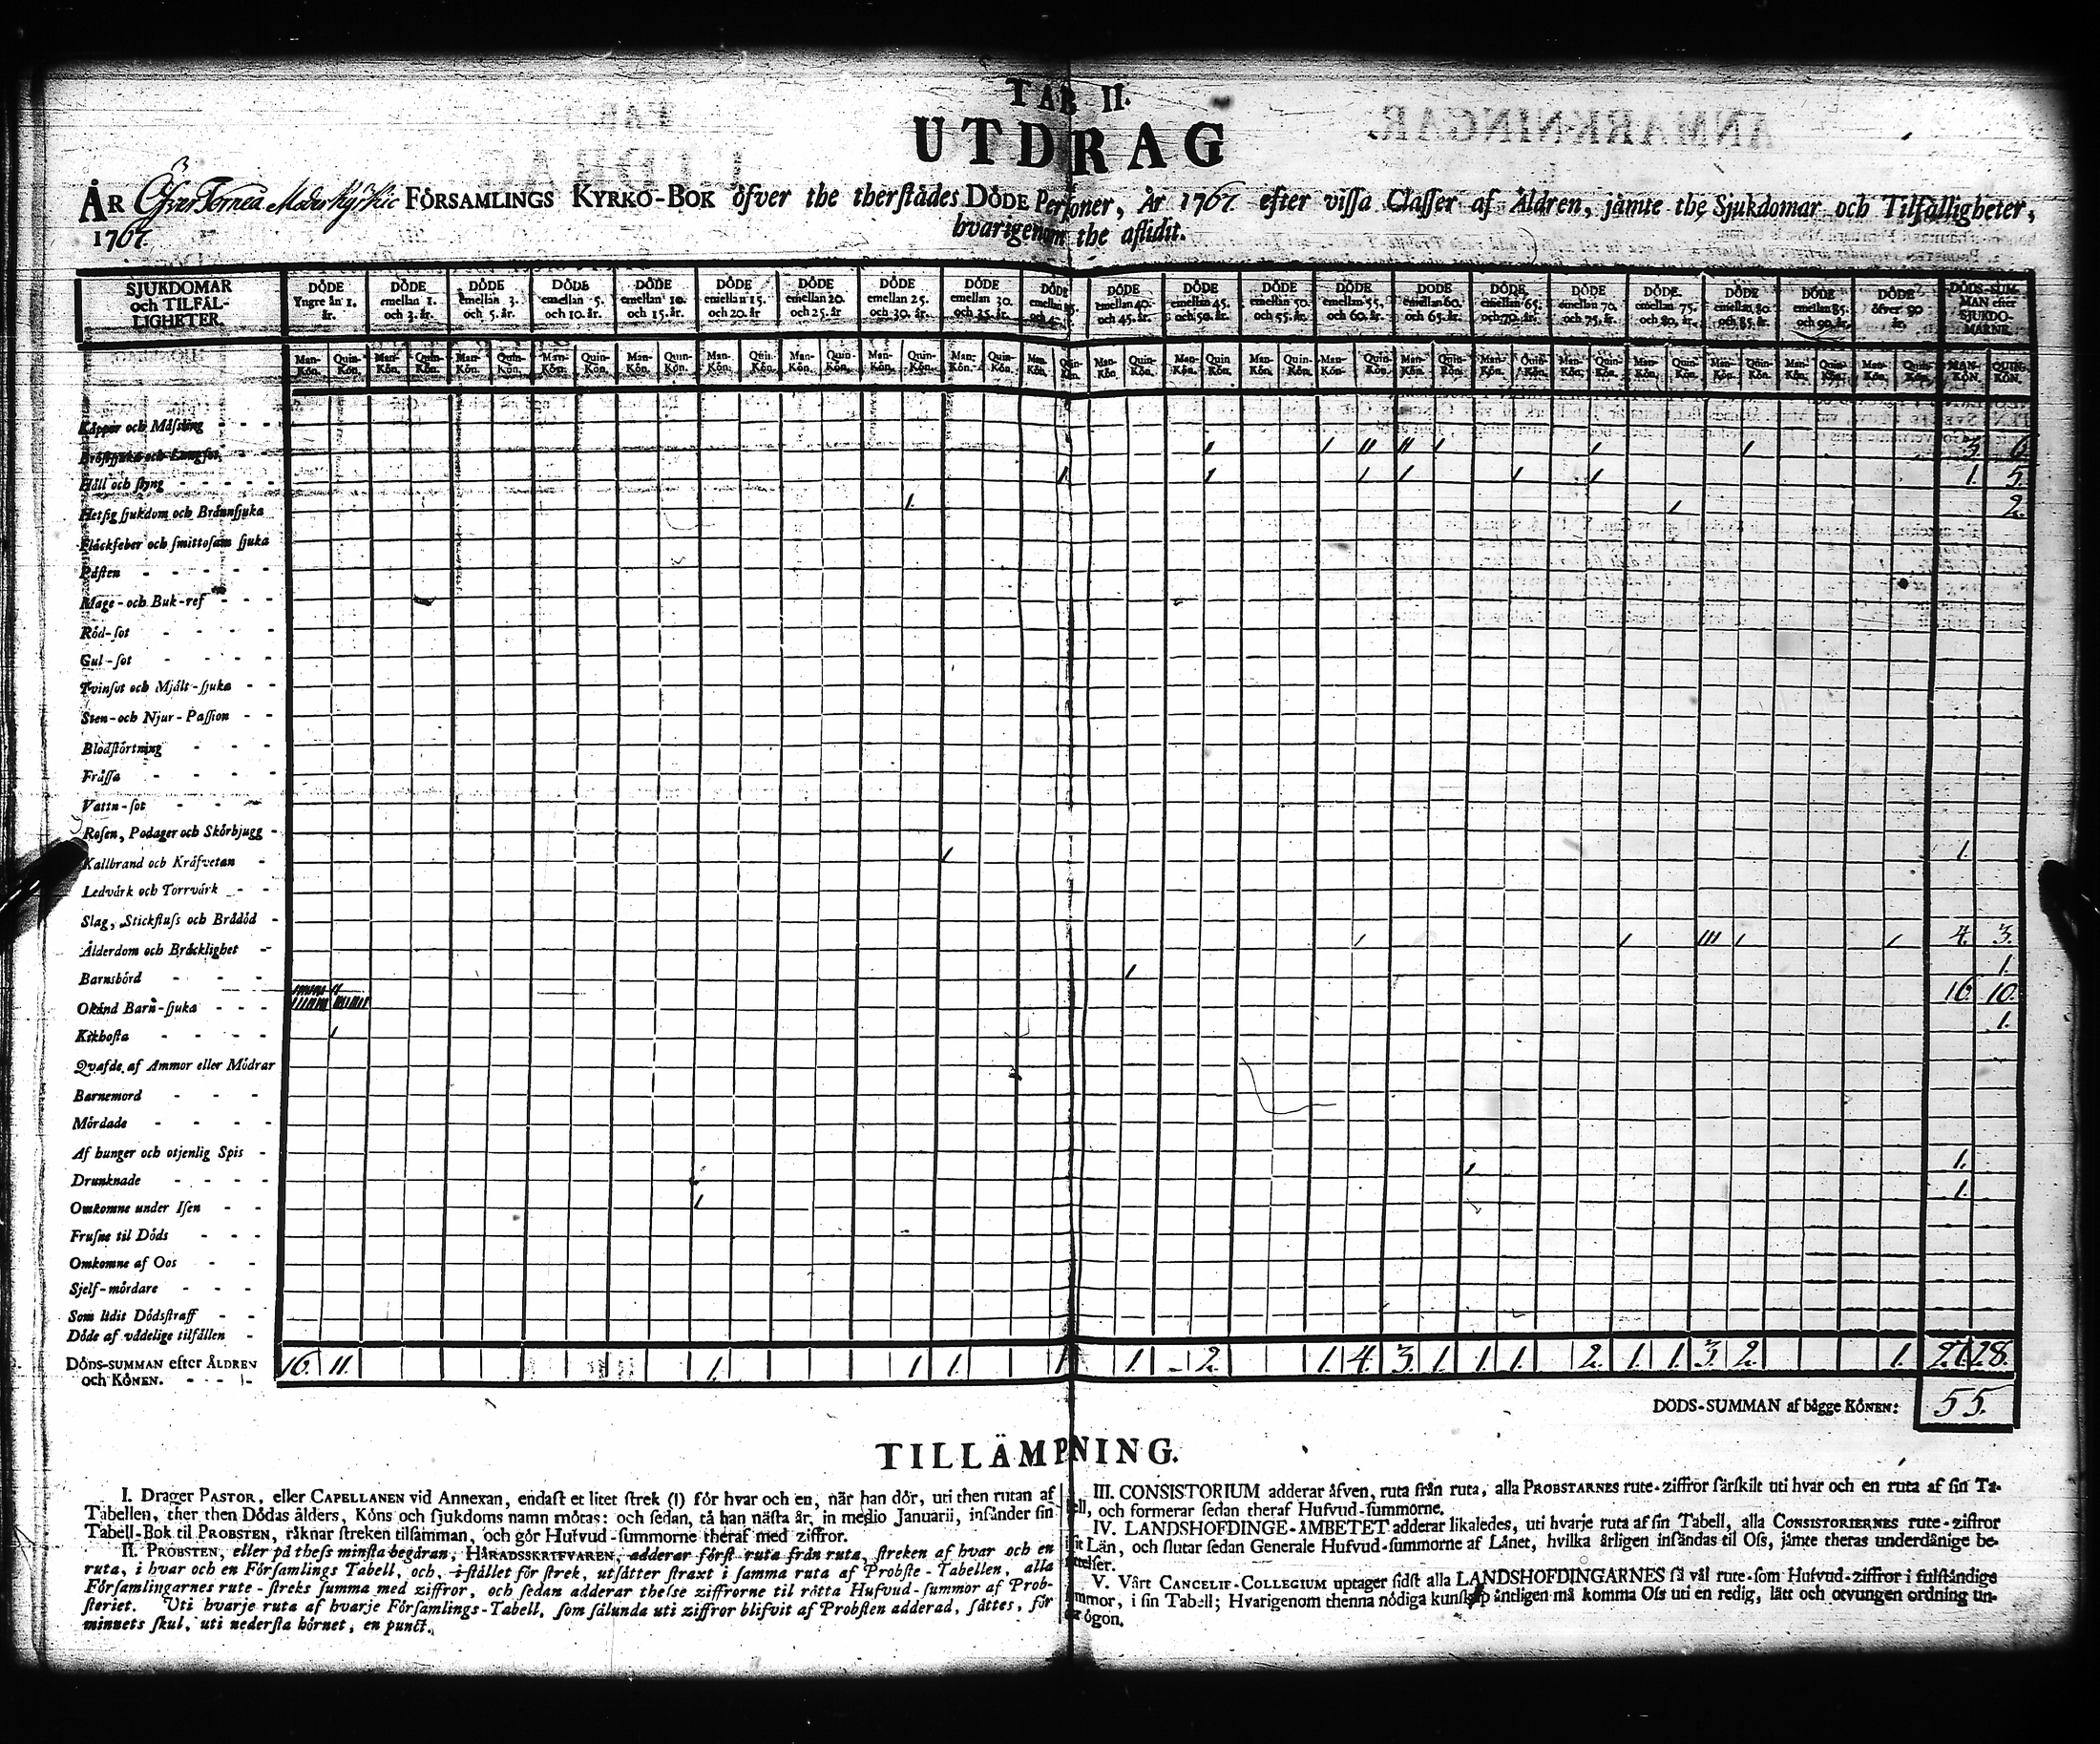 TAB II.
UTDRAG
ÅR Öfver Tornea Moderkyrkio FÖRSAMLINGS KYRKO-BOK öfver the therstädes DÖDE Personer, År 1767. efter vissa Classer af Åldren, jämte the Sjukdomar och Tilfälligheter,
1767. hvarigenom the aflidit.
SJUKDOMAR och TILFÄLLIGHETER. DÖDE Yngre än 1. år. DÖDE emellan 1. och 3. år. DÖDE emellan 3. och 5. år. DÖDE emellan 5. och 10. år. DÖDE emellan 10. och 15. år. DÖDE emellan 15. och 20. år DÖDE emellan 20. och 25. år DÖDE emellan 25. och 30. år DÖDE emellan 30. och 35. år DÖDE emellan 35. DÖDE emellan 40. och 45. år. DÖDE emellan 45. och 50. år. DÖDE emellan 50. och 55. år. DÖDE emellan 55. och 60. år. DÖDE emellan 60. och 65. år. DÖDE emellan 65. och 70. år. DÖDE emellan 70. och 75. år. DÖDE emellan 75. och 80. år. DÖDE emellan 80. och 85. år. DÖDE emellan 85. och 90. år. DÖDE öfver 90 år. DÖDS-SUMMAN efter SJUKDOMARNE.
Man-Kön. Quin-Kön. Man-Kön. Quin-Kön. Man-Kön. Quin-Kön. Man-Kön. Quin-Kön. Man-Kön. Quin-Kön. Man-Kön. Quin-Kön. Man-Kön. Quin-Kön. Man-Kön. Quin-Kön. Man-Kön. Quin-Kön. Man-Kön. Quin-Kön. Man-Kön. Quin-Kön. Man-Kön. Quin-Kön. Man-Kön. Quin-Kön. Man-Kön. Quin-Kön. Man-Kön. Quin-Kön. Man-Kön. Quin-Kön. Man-Kön. Quin-Kön. Man-Kön. Quin-Kön. Man-Kön. Quin-Kön. Man-Kön. Quin-Kön. Man-Kön. Quin-Kön. MAN-KÖN. QUIN-KÖN.
Koppor och Mässling - -
Bröstsjuka och Lungsot, - / / // // / / / 3. 6.
Håll och styng - - - - - 1. / / / / / 1. 5.
Hetsig sjukdom och Brännsjuka 1. / 2.
Fläckfeber och smittosam sjuka
Pästen - - - - -
Mage-och Buk-ref - - -
Röd-sot - - - -
Gul-sot - - - -
Tvinsot och Mjält-sjuka - -
Sten-och Njur-Passion - -
Blodstörtning - - -
Frässa - - - - -
Vattn-sot - - -
Rosen, Podager och Skörbjugg -
Kallbrand och Kräfvetan - / 1.
Ledvärk och Torrvärk - -
Slag, Stickfluss och Brådöd -
Ålderdom och Bräcklighet - / / /// / / 4. 3.
Barnsbörd - - - - / 1.
Okänd Barn-sjuka - - - 16. 10.
Kikhosta - - - - / 1.
Qvafde af Ammor eller Mödrar
Barnemord - - - -
Mördade - - - - -
Af hunger och otjenlig Spis -
Drunknade - - - - / 1.
Omkomne under Isen - - / 1.
Frusne til Döds - - -
Omkomne af Oos - -
Sjelf-mördare - - -
Som lidit Dödsstraff - -
Döde af vådelige tilfällen -
DÖDS-SUMMAN efter ÅLDREN 16. 11. 1. 1 1. 1 1. 2. 1. 4. 3. 1. 1. 1. 2. 1. 1. 3. 2. 1. 27. 28.
och KÖNEN. - - -
DÖDS-SUMMAN af bägge KÖNEN: 55.
TILLÄMPNING.
I. Drager PASTOR, eller CAPELLANEN vid Annexan, endast et litet strek (I) för hvar och en, när han dör, uti then rutan af
Tabellen, ther then Dödas ålders, Köns och sjukdoms namn mötas: och sedan, tå han nästa år, in medio Januarii, insänder sin
Tabell-Bok til PROBSTEN, räknar streken tilsamman, och gör Hufvud-summorne theraf med ziffror.
II. PROBSTEN, eller på thess minsta begäran, HÄRADSSKRIFVAREN, adderar först ruta från ruta, streken af hvar och en
ruta, i hvar och en Församlings Tabell, och, i stället för strek, utsätter straxt i samma ruta af Probste-Tabellen, alla
Församlingarnes rute-streks summa med ziffror, och sedan adderar thesse ziffrorne til rätta Hufvud-summor af Prob-
steriet. Uti hvarje ruta af hvarje Församlings-Tabell, som sålunda uti ziffror blifvit af Probsten adderad, sättes, för
minnets skul, uti nedersta hörnet, en punct.
III. CONSISTORIUM adderar äfven, ruta från ruta, alla PROBSTARNES rute-ziffror särskilt uti hvar och en ruta af sin Ta-
bell, och formerar sedan theraf Hufvud-summorne.
IV. LANDSHOFDINGE-ÄMBETET adderar likaledes, uti hvarje ruta af sin Tabell, alla CONSISTORIERNES rute-ziffror
i sit Län, och slutar sedan Generale Hufvud-summorne af Länet, hvilka årligen insändas til Oss, jämte theras underdånige be-
rättelser.
V. Vårt CANCELIE-COLLEGIUM uptager sidst alla LANDSHOFDINGARNES så väl rute-som Hufvud-ziffror i fulständige
summor, i sin Tabell; Hvarigenom thenna nödiga kunskap äntligen må komma Oss uti en redig, lätt och otvungen ordning un-
der ögon.